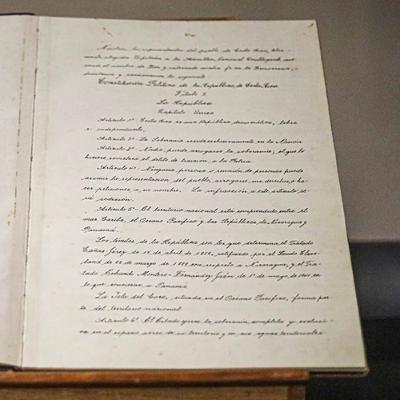 Nosotros, los representantes del pueblo de Costa Rica, libre-
mente elegidos Diputados a la Asamblea Nacional Constituyente, invo-
cando el nombre de Dios y reiterando nuestra fe en la Democracia,
decretamos y sancionamos la siguiente
Constitución Política de la República de Costa Rica
Título I
La República
Capítulo Único
Artículo 1º Costa Rica es una República democrática, libre
e independiente.
Artículo 2º La Soberanía reside exclusivamente en la Nación
Artículo 3º Nadie puede arrogarse la soberanía; el que lo
hiciere, cometerá el delito de traición a la Patria.
Artículo 4º Ninguna persona o reunión de personas puede
asumir la representación del pueblo, arrogarse sus derechos, o ha-
cer peticiones a su nombre. La infracción a este artículo se-
rá sedición.
Artículo 5º El territorio nacional está comprendido entre el
mar Caribe, el Océano Pacífico y las Repúblicas de Nicaragua y
Panamá.
Los límites de la República son los que determina el Tratado
Cañas-Jerez de 15 de abril de 1858, ratificado por el Laudo Cleve-
land de 22 de marzo de 1888, con respecto a Nicaragua, y el Tra-
tado Echandi Montero-Fernández Jaén de 1º de mayo de 1941, en
lo que concierne a Panamá.
La Isla del Coco, situada en el Océano Pacífico, forma par-
te del territorio nacional.
Artículo 6º El Estado ejerce la soberanía completa y exclusi-
va en el espacio aéreo de su territorio y en sus aguas territoriales